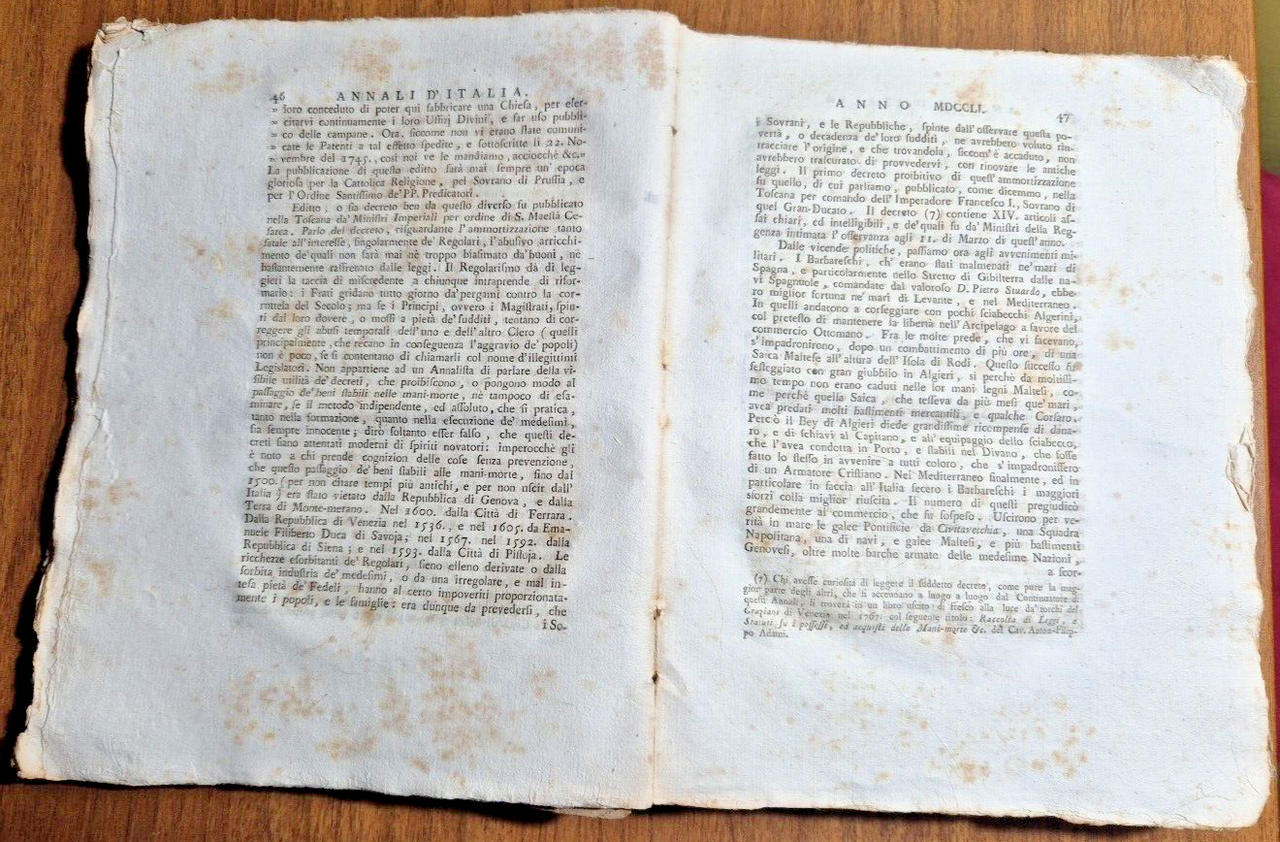 46 ANNALI D'ITALIA.
„ loro conceduto di poter qui fabbricare una Chiesa, per eser-
„ citarvi continuamente i loro Uffizj Divini, e far uso pubbli-
„ co delle campane. Ora, siccome non vi erano state comuni-
„ cate le Patenti a tal effetto spedite, e sottoscritte li 22. No-
„ vembre del 1745., così noi ve le mandiamo, acciocchè &c.„
La pubblicazione di questo editto sarà mai sempre un' epoca
gloriosa per la Cattolica Religione, pel Sovrano di Prussia, e
per l'Ordine Santissimo de' PP. Predicatori.
Editto, o sia decreto ben da questo diverso fu pubblicato
nella Toscana da' Ministri Imperiali per ordine di S. Maestà Ce-
sarea. Parlo del decreto, risguardante l'ammortizzazione tanto
fatale all'interesse, singolarmente de' Regolari, l'abusivo arricchi-
mento de' quali non sarà mai nè troppo biasimato da' buoni, nè
bastantemente raffrenato dalle leggi. Il Regolarismo dà di leg-
gieri la taccia di miscredente a chiunque intraprende di rifor-
marlo: i Frati gridano tutto giorno da' pergami contro la cor-
ruttela del Secolo; ma se i Principi, ovvero i Magistrati, spin-
ti dal loro dovere, o mossi a pietà de' sudditi, tentano di cor-
reggere gli abusi temporali dell'uno e dell'altro Clero (quelli
principalmente, che recano in conseguenza l'aggravio de' popoli)
non è poco, se si contentano di chiamarli col nome d'illegittimi
Legislatori. Non appartiene ad un Annalista di parlare della vi-
sibile utilità de' decreti, che proibiscono, o pongono modo al
passaggio de' beni stabili nelle mani-morte, nè tampoco di esa-
minare, se il metodo indipendente, ed assoluto, che si pratica,
tanto nella formazione, quanto nella esecuzione de' medesimi,
sia sempre innocente; dirò soltanto esser falso, che questi de-
creti siano attentati moderni di spiriti novatori: imperocchè gli
è noto a chi prende cognizion delle cose senza prevenzione,
che questo passaggio de' beni stabili alle mani-morte, sino dal
1500. (per non citare tempi più antichi, e per non uscir dall'
Italia) era stato vietato dalla Repubblica di Genova, e dalla
Terra di Monte-merano. Nel 1600. dalla Città di Ferrara.
Dalla Repubblica di Venezia nel 1536., e nel 1605. da Ema-
nuele Filiberto Duca di Savoja; nel 1567. nel 1592. dalla
Repubblica di Siena; e nel 1593. dalla Città di Pistoja. Le
ricchezze esorbitanti de' Regolari, sieno elleno derivate o dalla
sorbita industria de' medesimi, o da una irregolare, e mal in-
tesa pietà de' Fedeli, hanno al certo impoveriti proporzionata-
mente i popoli, e le famiglie: era dunque da prevedersi, che
i So-
ANNO MDCCLI. 47
i Sovrani, e le Repubbliche, spinte dall'osservare questa po-
vertà, o decadenza de' loro sudditi, ne avrebbero voluto rin-
tracciare l'origine, e che trovandola, siccom'è accaduto, non
avrebbero trascurato di provvedervi, con rinovare le antiche
leggi. Il primo decreto proibitivo di quest'ammortizzazione
fu quello, di cui parliamo, pubblicato, come dicemmo, nella
Toscana per comando dell'Imperadore Francesco I., Sovrano di
quel Gran-Ducato. Il decreto (7) contiene XIV. articoli as-
sai chiari, ed intelligibili, e de' quali fu da' Ministri della Reg-
genza intimata l'osservanza agli 11. di Marzo di quest'anno.
Dalle vicende politiche, passiamo ora agli avvenimenti mi-
litari. I Barbareschi, ch' erano stati malmenati ne' mari di
Spagna, e particolarmente nello Stretto di Gibilterra dalle na-
vi Spagnuole, comandate dal valoroso D. Pietro Stuardo, ebbe-
ro miglior fortuna ne' mari di Levante, e nel Mediterraneo.
In quelli andatono a corseggiare con pochi sciabecchi Algerini,
col pretesto di mantenere la libertà nell'Arcipelago a favore del
commercio Ottomano. Fra le molte prede, che vi facevano,
s'impadronirono, dopo un combattimento di più ore, di una
Saica Maltese all'altura dell' Isola di Rodi. Questo successo fu
festeggiato con gran giubbilo in Algieri, sì perchè da moltissi-
mo tempo non erano caduti nelle lor mani legni Maltesi, co-
me perchè quella Saica, che tesseva da più mesi que' mari,
avea predati molti bastimenti mercantili, e qualche Corsaro.
Perciò il Bey di Algieri diede grandissime ricompense di dana-
ro, e di schiavi al Capitano, e all' equipaggio dello sciabecco,
che l'avea condotta in Porto, e stabilì nel Divano, che fosse
fatto lo stesso in avvenire a tutti coloro, che s'impadronissero
di un Armatore Cristiano. Nel Mediterraneo finalmente, ed in
particolare in faccia all' Italia fecero i Barbareschi i maggiori
sforzi colla miglior riuscita. Il numero di questi pregiudicò
grandemente al commercio, che fu sospeso. Uscirono per ve-
rità in mare le galee Pontificie da Civitavecchia, una Squadra
Napolitana, una di navi, e galee Maltesi, e più bastimenti
Genovesi, oltre molte barche armate delle medesime Nazioni,
a scor-
(7) Chi avesse curiosità di leggere il suddetto decreto, come pure la mag-
gior parte degli altri, che si accennano a luogo a luogo dal Continuatore di
questi Annali, li troverà in un libro uscito di fresco alla luce da' torchi del
Graziosi di Venezia nel 1767. col seguente titolo: Raccolta di Leggi, e
Statuti su i possessi, ed acquisti delle Mani-morte &c. del Cav. Anton-Filip-
po Adami.